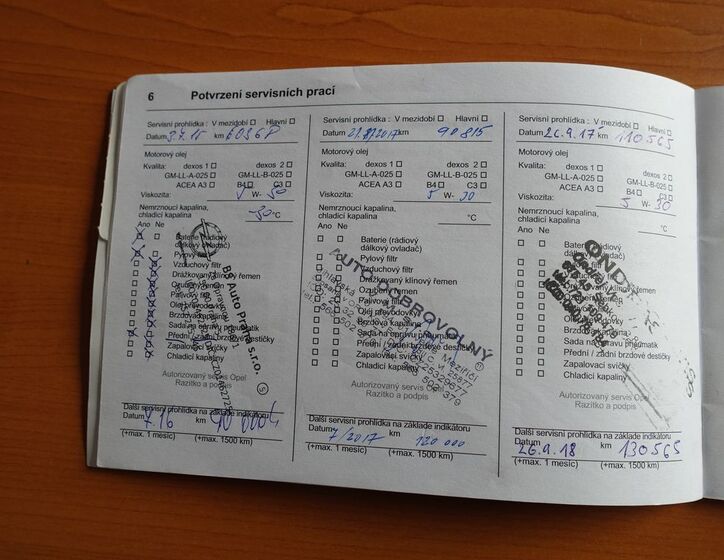 6 Potvrzení servisních prací
Servisní prohlídka : V mezidobí Hlavní
Datum 3.7.15 km 60368
Motorový olej
Kvalita: dexos 1 dexos 2
GM-LL-A-025 GM-LL-B-025
ACEA A3 B4 C3
Viskozita: W-
Nemrznoucí kapalina,
chladicí kapalina -30 °C
Ano Ne
Baterie (rádiový
dálkový ovladač)
Pylový filtr
Vzduchový filtr
Drážkovaný klínový řemen
Ozubený řemen
Palivový filtr
Olej převodovky
Brzdová kapalina
Sada na opravu pneumatik
Přední / zadní brzdové destičky
Zapalovací svíčky
Chladicí kapaliny
BG Auto Praha s.r.o.
Autorizovaný servis Opel
Razítko a podpis
Další servisní prohlídka na základe indikátoru
Datum 7.16 km
(+max. 1 měsíc) (+max. 1500 km)
Servisní prohlídka : V mezidobí Hlavní
Datum km 90815
Motorový olej
Kvalita: dexos 1 dexos 2
GM-LL-A-025 GM-LL-B-025
ACEA A3 B4 C3
Viskozita: 5 W- 30
Nemrznoucí kapalina,
chladicí kapalina °C
Ano Ne
Baterie (rádiový
dálkový ovladač)
Pylový filtr
Vzduchový filtr
Drážkovaný klínový řemen
Ozubený řemen
Palivový filtr
Olej převodovky
Brzdová kapalina
Sada na opravu pneumatik
Přední / zadní brzdové destičky
Zapalovací svíčky
Chladicí kapaliny
AUTO DOBROVOLNÝ
Autorizovaný servis Opel
Razítko a podpis
Další servisní prohlídka na základe indikátoru
Datum 7/2017 km 120 000
(+max. 1 měsíc) (+max. 1500 km)
Servisní prohlídka : V mezidobí Hlavní
Datum 26.9.17 km 110565
Motorový olej
Kvalita: dexos 1 dexos 2
GM-LL-A-025 GM-LL-B-025
ACEA A3 B4 C3
Viskozita: 5 W- 30
Nemrznoucí kapalina,
chladicí kapalina °C
Ano Ne
Baterie (rádiový
dálkový ovladač)
Pylový filtr
Vzduchový filtr
Drážkovaný klínový řemen
Ozubený řemen
Palivový filtr
Olej převodovky
Brzdová kapalina
Sada na opravu pneumatik
Přední / zadní brzdové destičky
Zapalovací svíčky
Chladicí kapaliny
Autorizovaný servis Opel
Razítko a podpis
Další servisní prohlídka na základe indikátoru
Datum 26.9.18 km 130565
(+max. 1 měsíc) (+max. 1500 km)